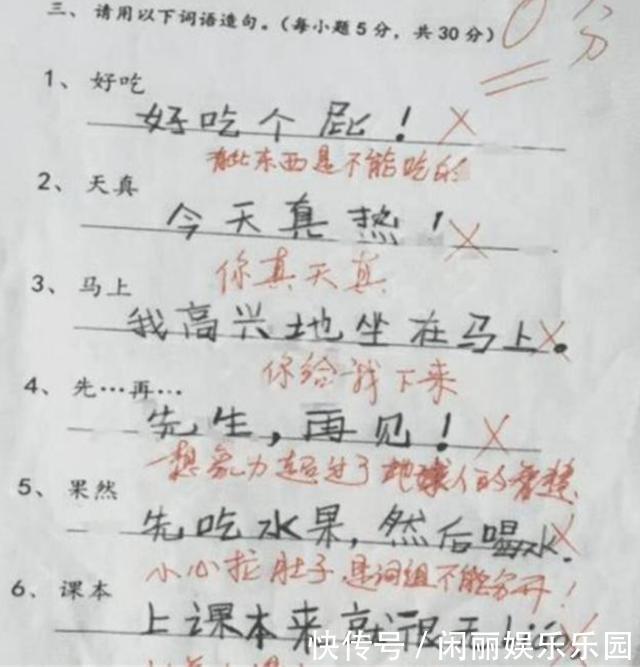 三、请用以下词语造句。(每小题5分,共30分)
0分
1、好吃
好吃个屁!
有些东西是不能吃的
2、天真
今天真热!
你真天真
3、马上
我高兴地坐在马上。
你给我下来
4、先…再…
先生,再见!
想象力超过了地球人的智慧
5、果然
先吃水果,然后喝水.
小心拉肚子,是词组不能分开!
6、课本
上课本来就很
快传号/闲丽娱乐乐园